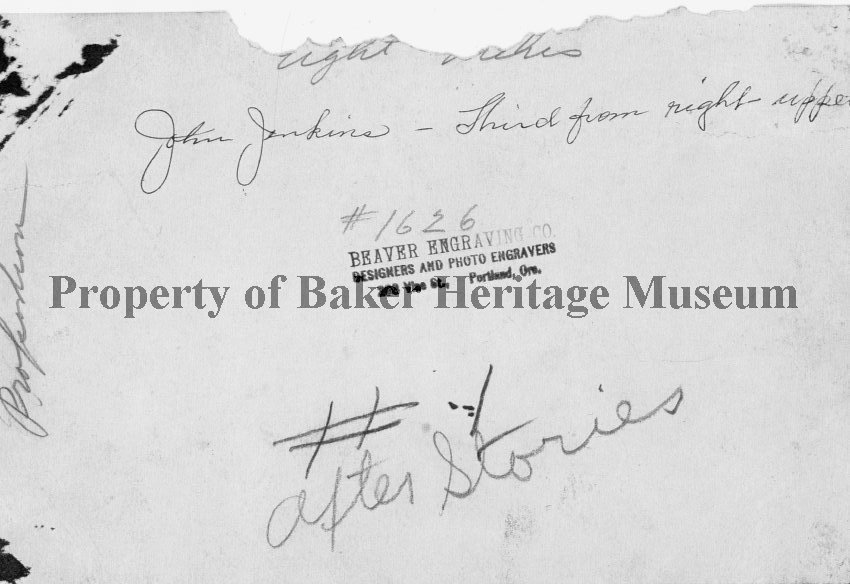 right
John Jenkins - Third from right uppe
#1626
BEAVER ENGRAVING CO.
DESIGNERS AND PHOTO ENGRAVERS
St. Portland, Ore.
Property of Baker Heritage Museum
Proportion
# -1
after Stories